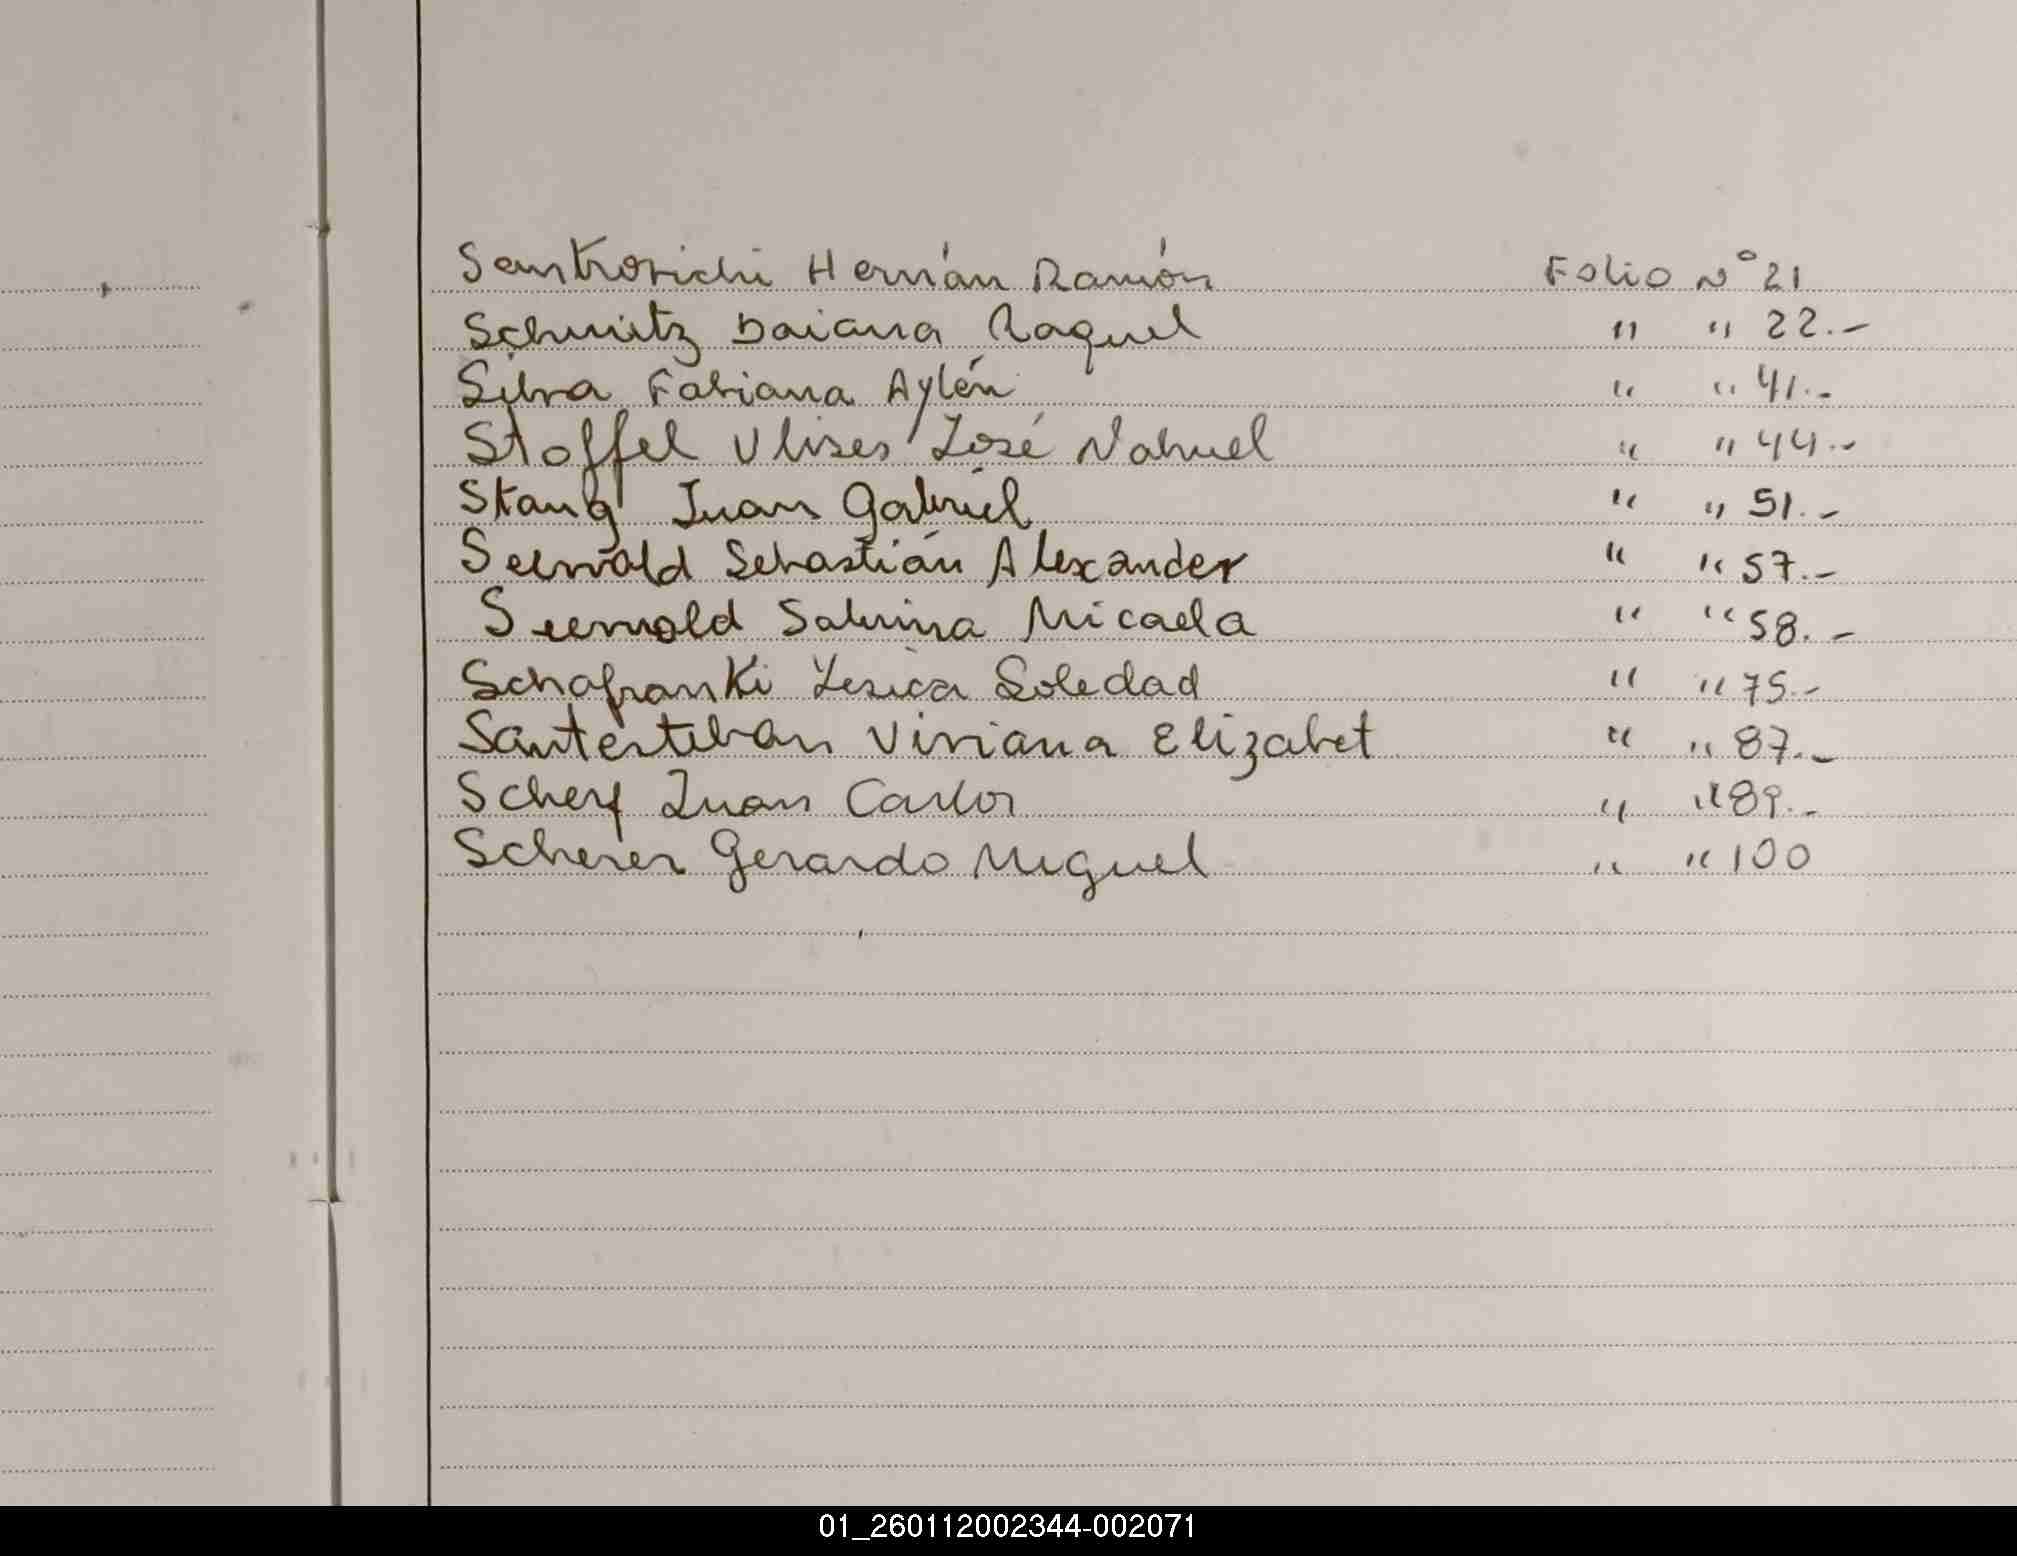 Santrovichi Hernán Ramón Folio N° 21
Schmitz Daiana Raquel " " 22.-
Silva Fabiana Aylén " " 41.-
Stoffel Ulises José Nahuel " " 44.-
Stang Juan Gabriel " " 51.-
Seewald Sebastián Alexander " " 57.-
Seewald Sabrina Micaela " " 58.-
Schafranki Yesica Soledad " " 75.-
Santesteban Viviana Elizabet " " 87.-
Scherf Juan Carlos " " 89.-
Scherer Gerardo Miguel " " 100
01_260112002344-002071